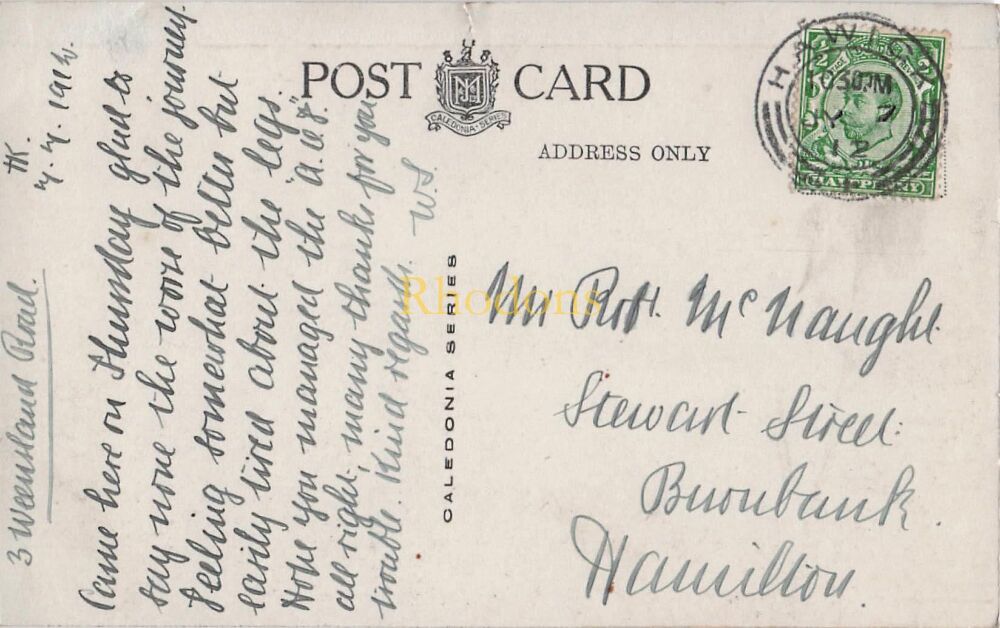 3 Weensland Road.
HK.
7. 7. 1912.
Came here on Thursday glad to
say none the worse of the journey.
Feeling somewhat better but
easily tired about the legs.
Hope you managed the "a.a.f."
all right, many thanks for your
trouble. Kind regards. W.S.
POST CARD
CALEDONIA SERIES
ADDRESS ONLY
HAWICK
30PM
JY 7
12
HALFPENNY
Rhodons
CALEDONIA SERIES
Mr Robt. McNaught.
Stewart Street.
Burnbank.
Hamilton.